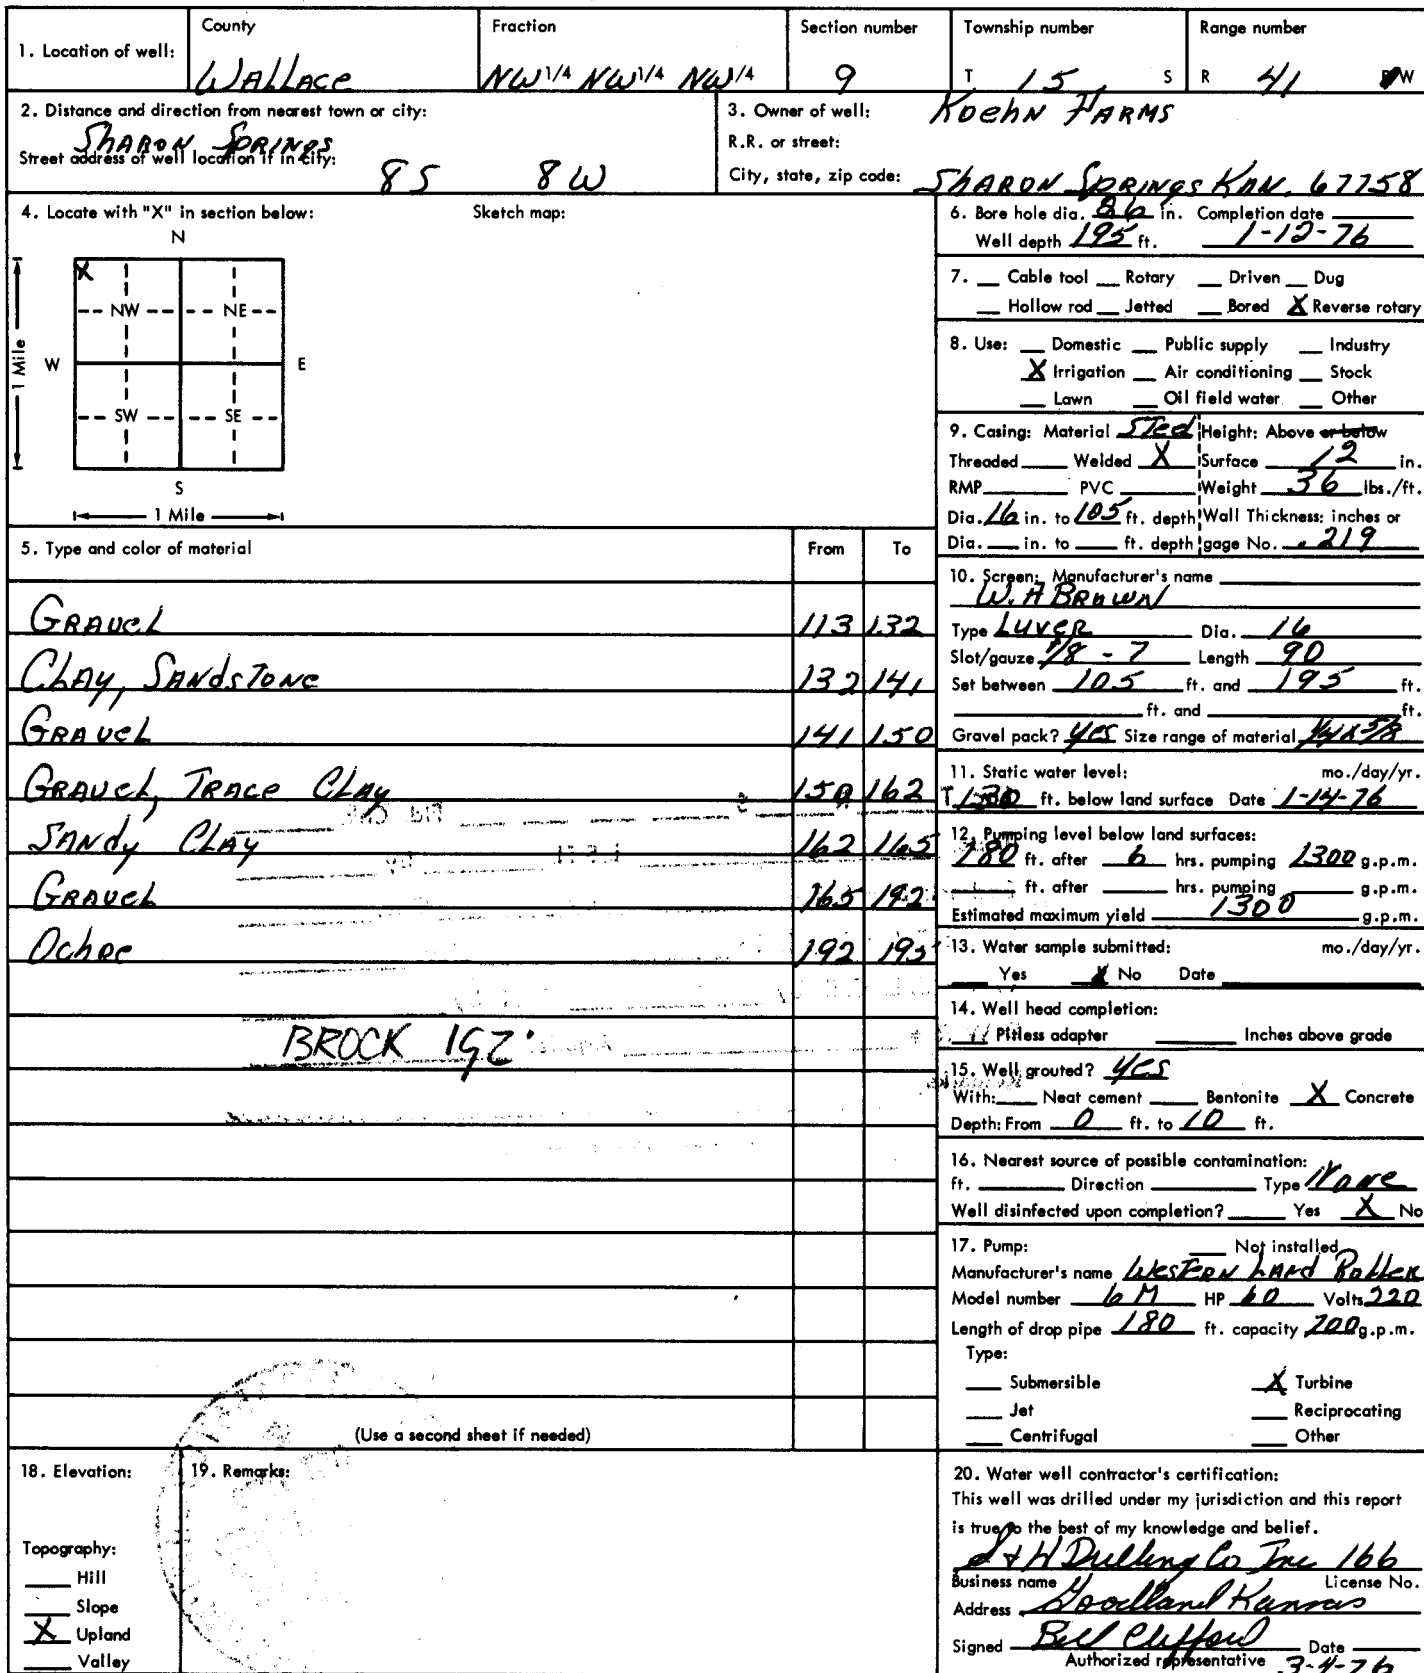 1. Location of well: County Fraction Section number Township number Range number
Wallace NW 1/4 NW 1/4 NW 1/4 9 T 15 S R 41 W
2. Distance and direction from nearest town or city:
Sharon Springs
Street address of well location if in city: 8S 8W
3. Owner of well: Koehn Farms
R.R. or street:
City, state, zip code: Sharon Springs Kan. 67758
4. Locate with "X" in section below: Sketch map:
N
X
NW NE
W E
1 Mile
SW SE
S
1 Mile
5. Type and color of material From To
Gravel 113 132
Clay, Sandstone 132 141
Gravel 141 150
Gravel, Trace Clay 150 162
Sandy Clay 162 165
Gravel 165 192
Ochre 192 195
BROCK 192'
(Use a second sheet if needed)
6. Bore hole dia. in. Completion date
Well depth 195 ft. 1-12-76
7. Cable tool Rotary Driven Dug
Hollow rod Jetted Bored X Reverse rotary
8. Use: Domestic Public supply Industry
X Irrigation Air conditioning Stock
Lawn Oil field water Other
9. Casing: Material Steel Height: Above or below
Threaded Welded X Surface 12 in.
RMP PVC Weight 36 lbs./ft.
Dia. 16 in. to 105 ft. depth Wall Thickness: inches or
Dia. in. to ft. depth gage No. .219
10. Screen: Manufacturer's name
W.A Brown
Type Luver Dia. 16
Slot/gauze 1/8 - 7 Length 90
Set between 105 ft. and 195 ft.
ft. and ft.
Gravel pack? Yes Size range of material 1/4 x 5/8
11. Static water level: mo./day/yr.
130 ft. below land surface Date 1-14-76
12. Pumping level below land surfaces:
180 ft. after 6 hrs. pumping 1300 g.p.m.
ft. after hrs. pumping g.p.m.
Estimated maximum yield 1300 g.p.m.
13. Water sample submitted: mo./day/yr.
Yes X No Date
14. Well head completion:
Pitless adapter Inches above grade
15. Well grouted? Yes
With: Neat cement Bentonite X Concrete
Depth: From 0 ft. to 10 ft.
16. Nearest source of possible contamination:
ft. Direction Type None
Well disinfected upon completion? Yes X No
17. Pump: Not installed
Manufacturer's name Western Land Roller
Model number 6M HP 60 Volts 220
Length of drop pipe 180 ft. capacity 700 g.p.m.
Type:
Submersible X Turbine
Jet Reciprocating
Centrifugal Other
18. Elevation:
Topography:
Hill
Slope
X Upland
Valley
19. Remarks:
20. Water well contractor's certification:
This well was drilled under my jurisdiction and this report
is true to the best of my knowledge and belief.
& H Drilling Co Inc 166
Business name License No.
Address Goodland Kansas
Signed Bill Clifford Date
Authorized representative 3-4-76